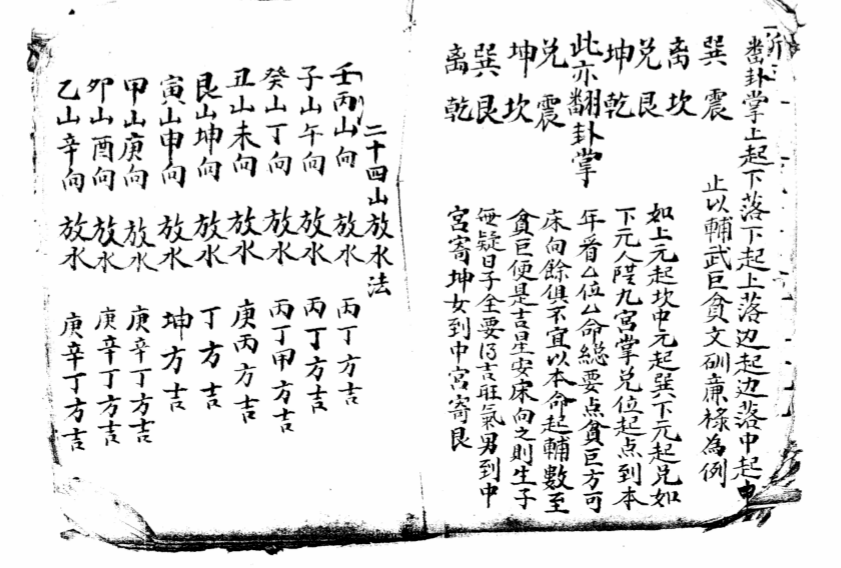 番卦掌上起下落下起上落边起边落中起中
止以輔武巨貪文破廉祿為例
巽震
离坎
兑艮
坤乾
此亦翻卦掌
兑震
坤坎
巽艮
离乾
如上元起坎中元起巽下元起兑如
下元人陞九宮掌兑位起点到本
年看厶位厶命總要点貪巨方可
床向餘俱不宜以本命起輔數至
貪巨便是吉星安床向之則生子
無疑日子全要得吉旺氣男到中
宮寄坤女到中宮寄艮
二十四山放水法
壬山丙向放水丙丁方吉
子山午向放水丙丁方吉
癸山丁向放水丙丁甲方吉
丑山未向放水庚丙方吉
艮山坤向放水丁方吉
寅山申向放水坤方吉
甲山庚向放水庚辛丁方吉
卯山酉向放水庚辛丁方吉
乙山辛向放水庚辛丁方吉